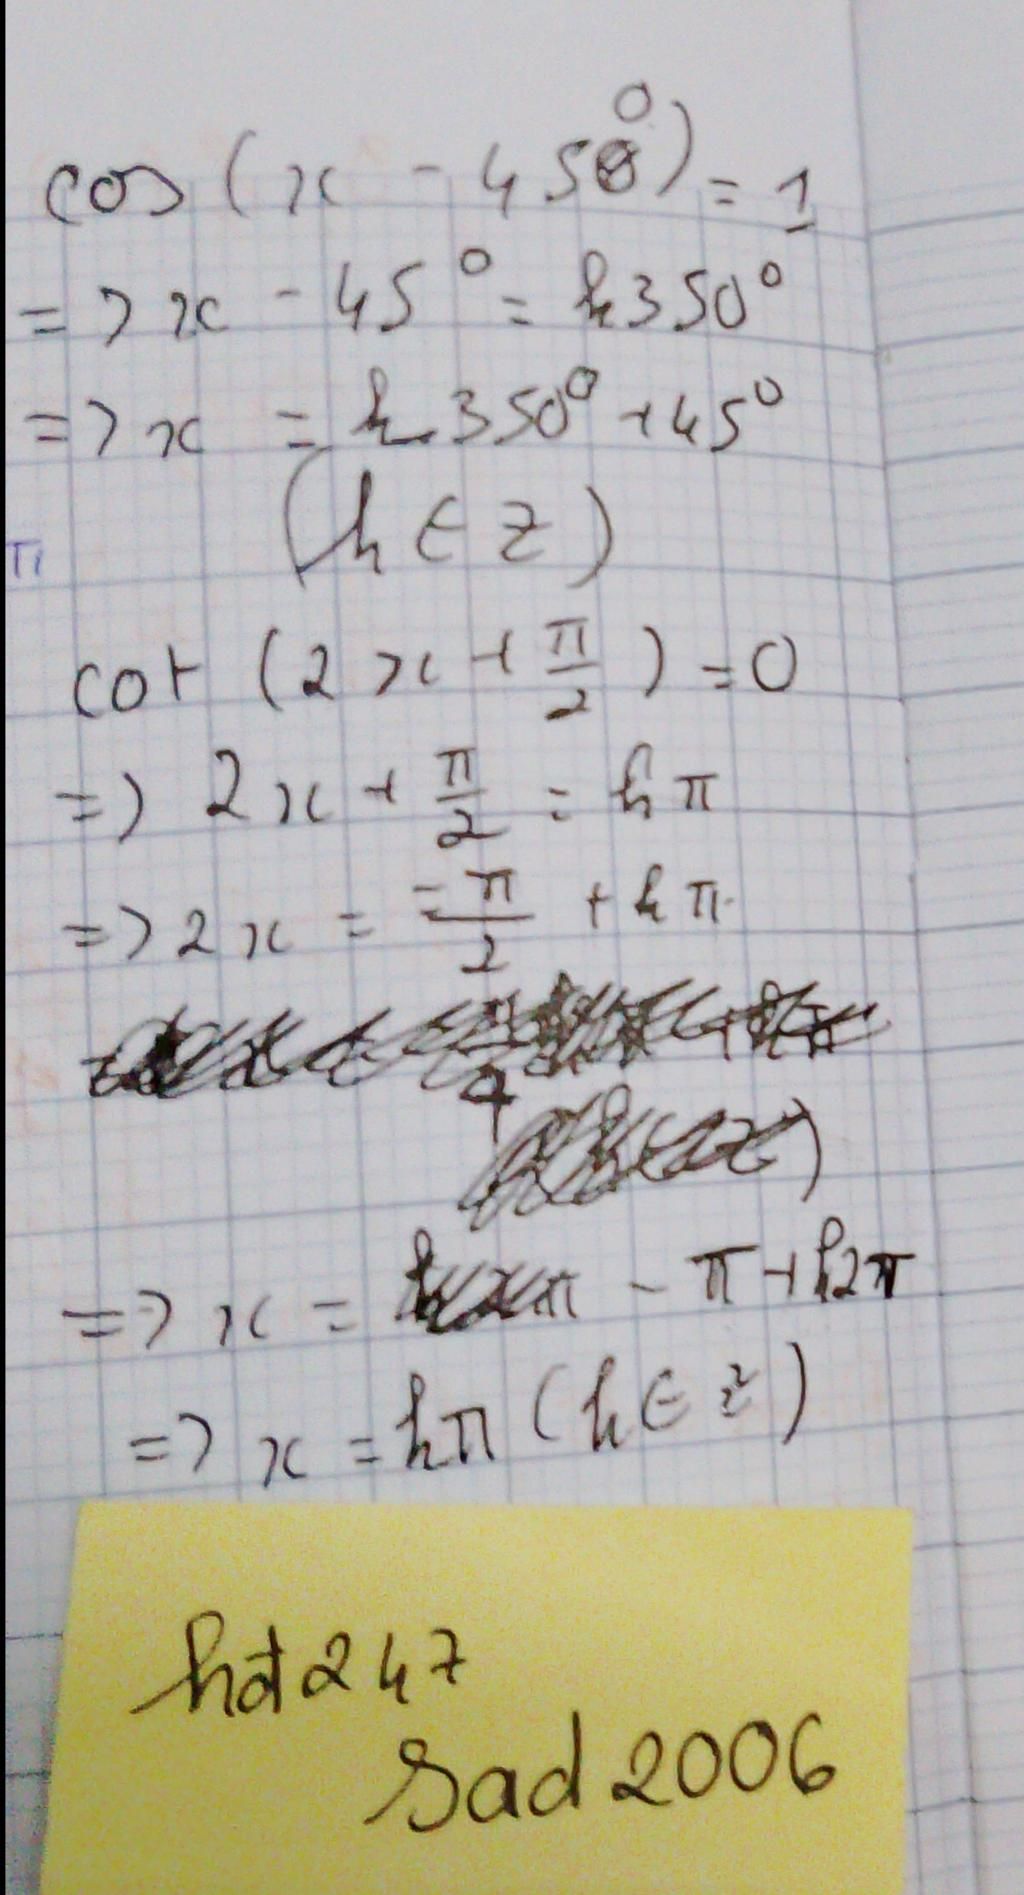 cos (x - 450°) = 1
=> x - 45° = k350°
=> x = k350° + 45°
(k ∈ Z)
π
cot (2x + π/2) = 0
=> 2x + π/2 = kπ
=> 2x = -π/2 + kπ
=> x = - π + k2π
=> x = kπ (k ∈ Z)
hdt247
Sad2006